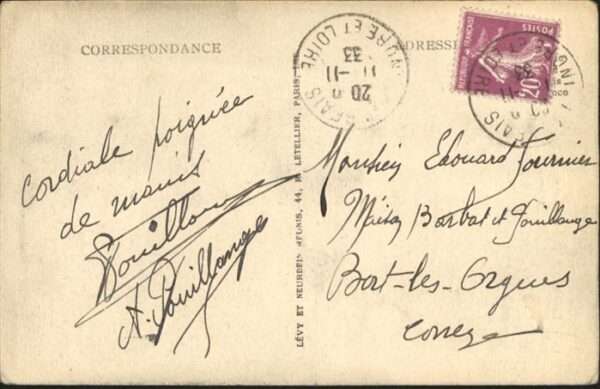 CORRESPONDANCE
Cordiale poignée
de mains
Pouillange
A. Pouillange
LÉVY ET NEURDEIN RÉUNIS, 44, LETELLIER, PARIS
INDRE ET LOIRE
20
11-11
33
POSTES
20
Monsieur Edouard Fournier
Maison Borbat et Pouillange
Bort-les-Orgues
Corrèze